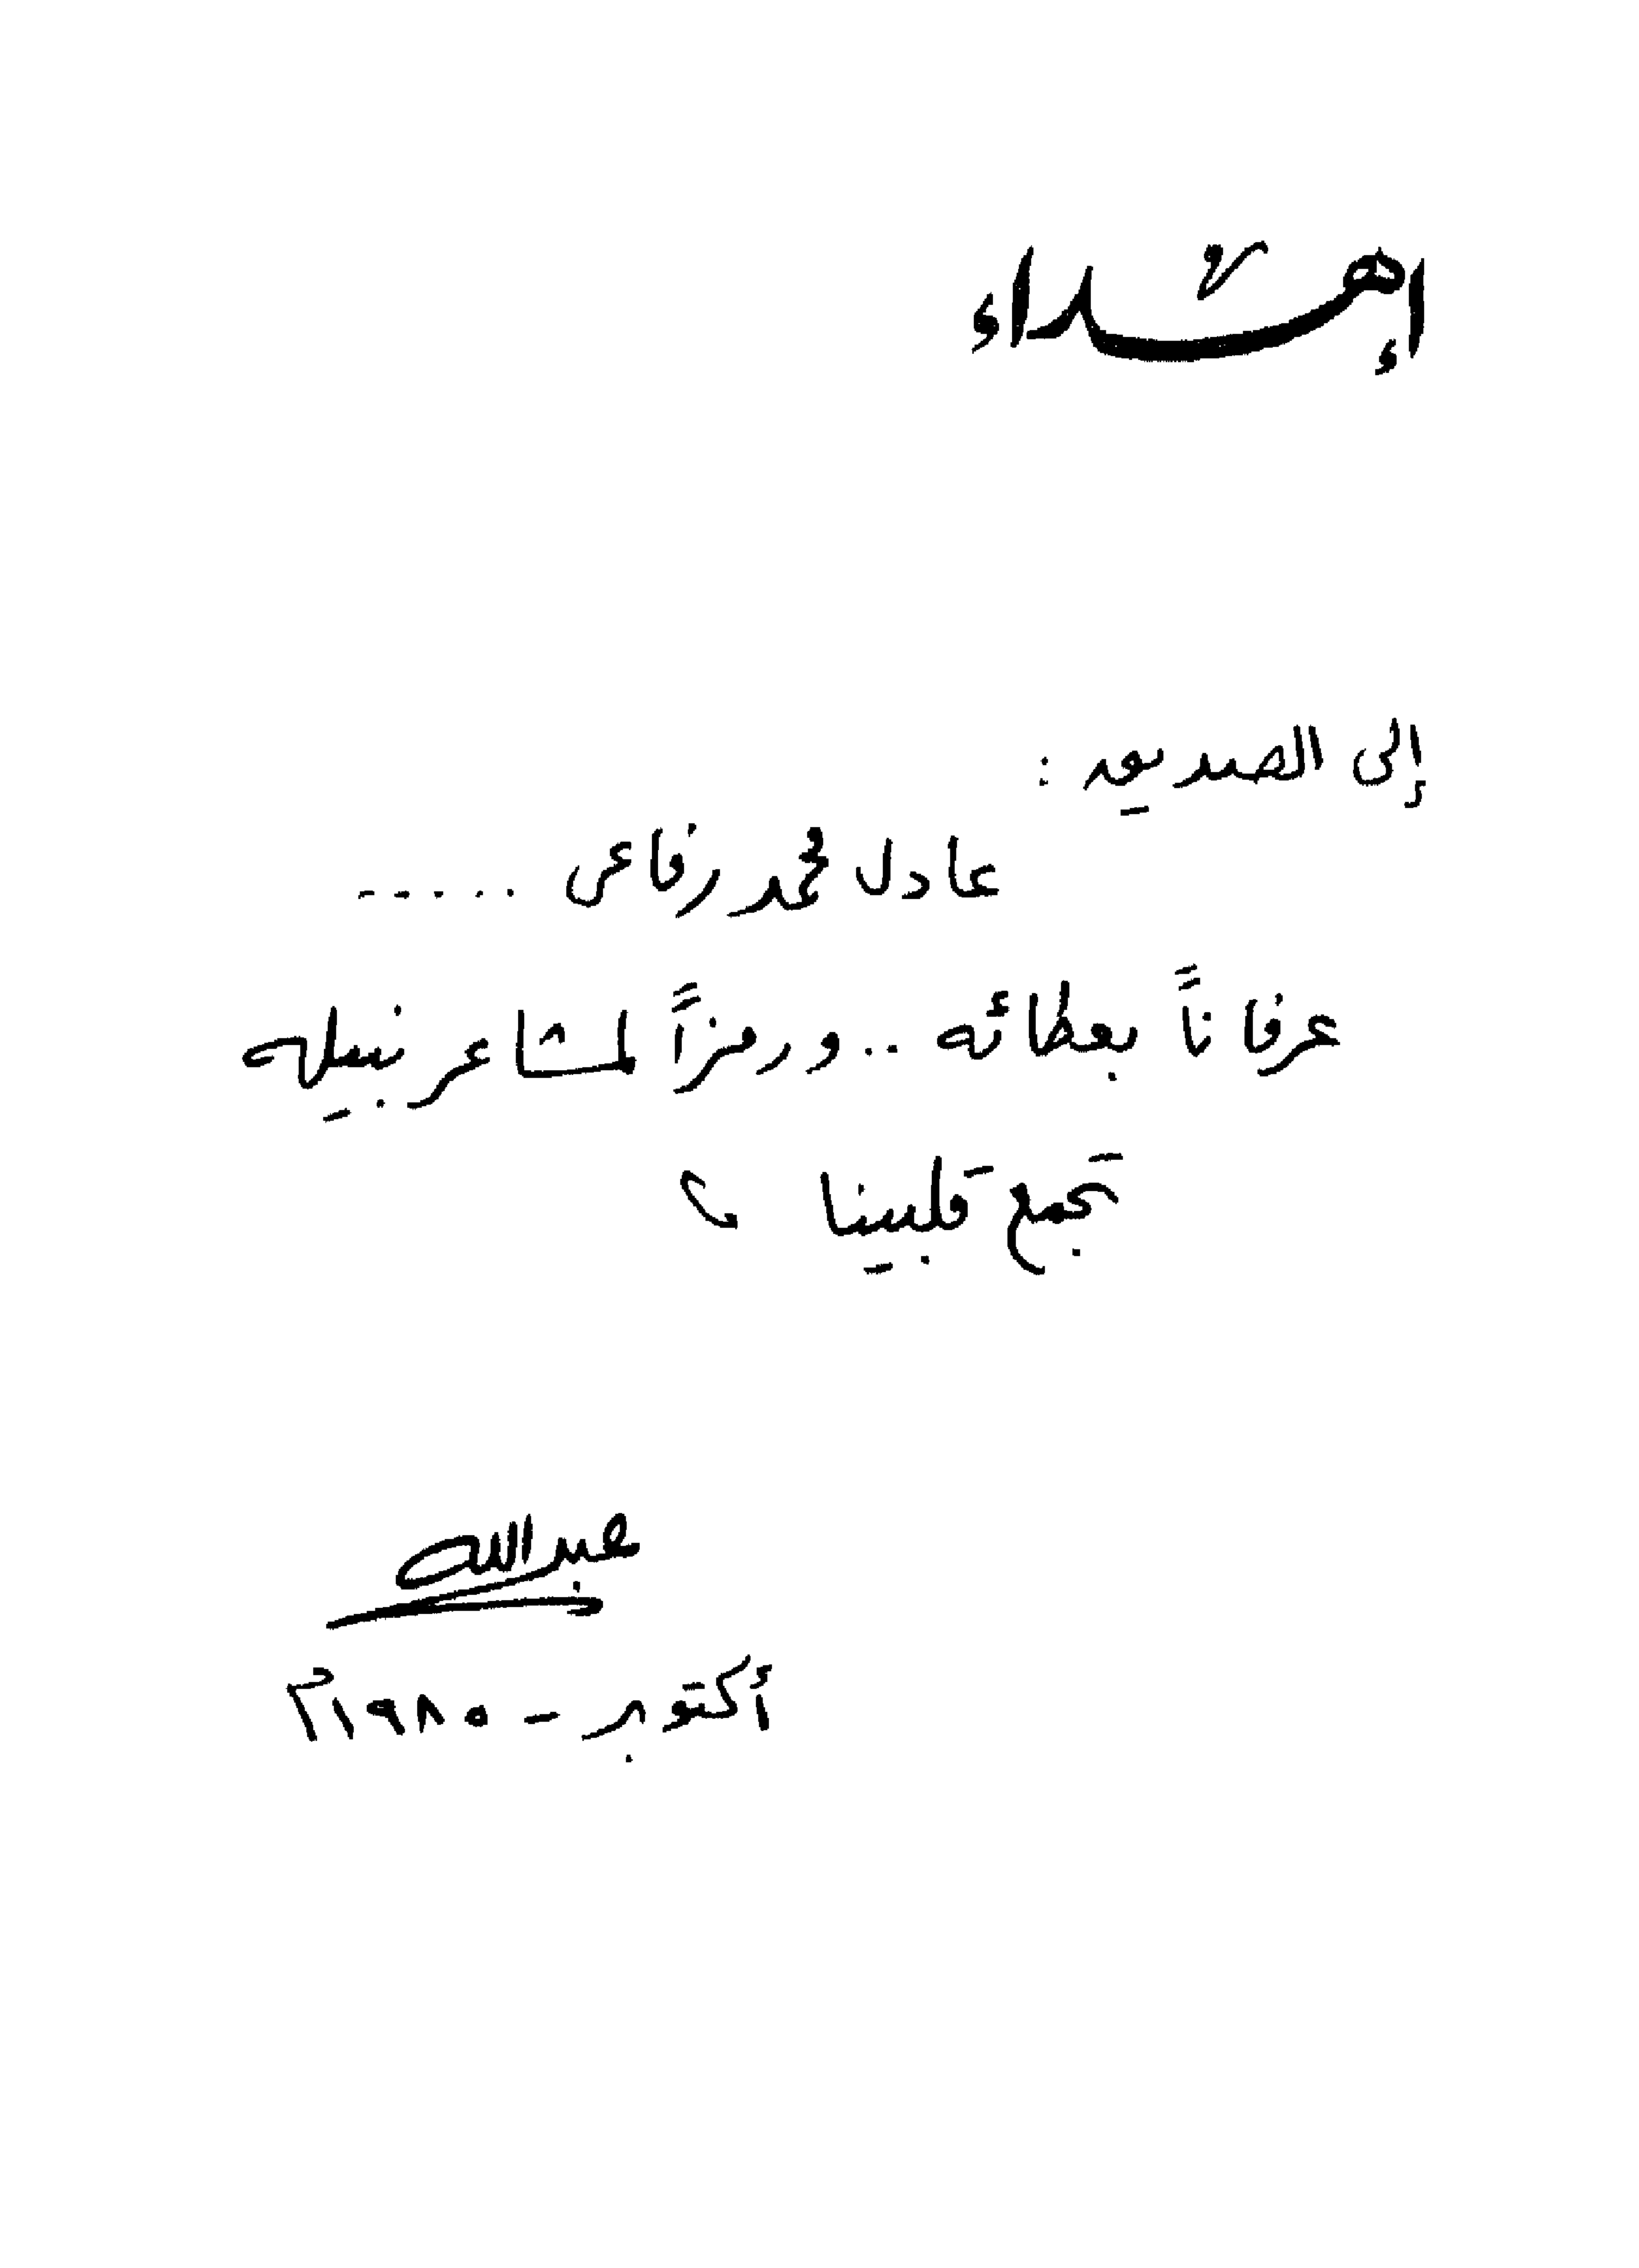 إهداء
إلى الصديق :
عادل محمد رفاعى .....
عرفاناً بعطائه .. ورمزاً لمشاعر نبيله
تجمع قلبينا
عبدالله
أكتوبر - ١٩٨٥م